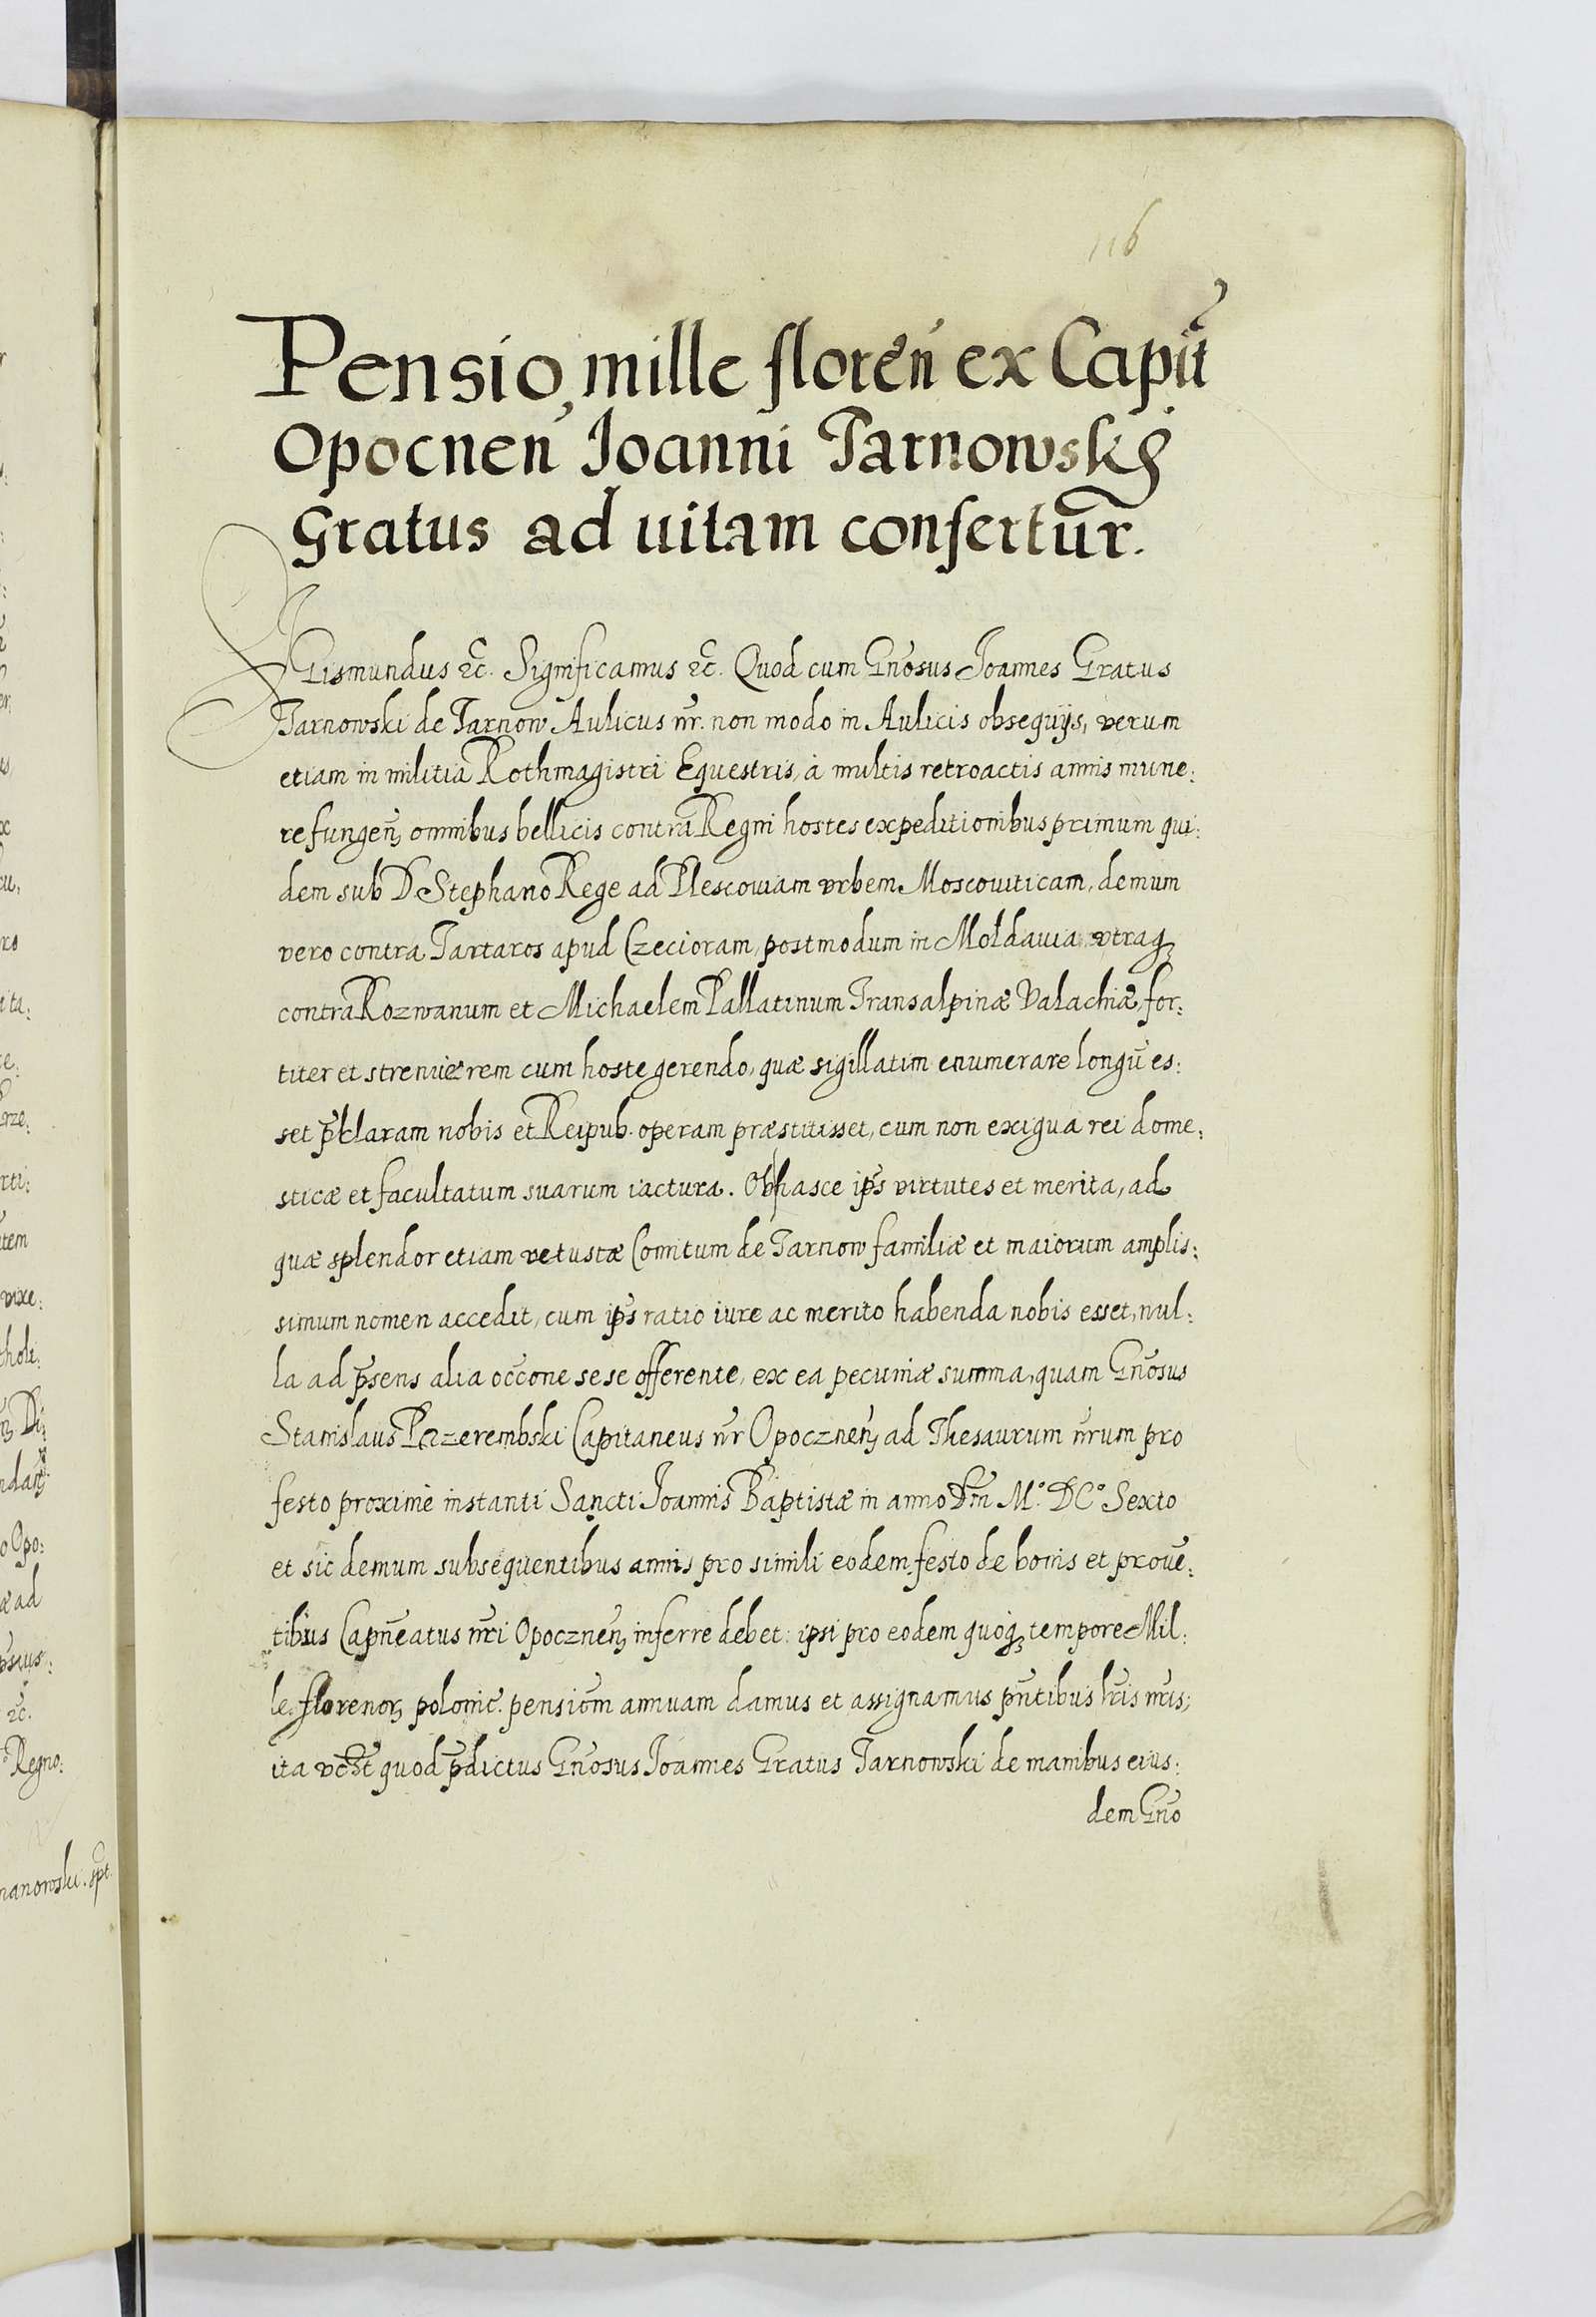 116
Pensio, mille floreñ ex Capit
Opocneñ Joanni Tarnowskÿ
Gratus ad uitam confertur.
SIGismundus &c̃. Significamus &c̃. Quod cum Gñosus Joannes Gratus
Tarnowski de Tarnow Aulicus nr̃. non modo in Aulicis obsequijs, verum
etiam in militia Rothmagistri Equestris, à multis retroactis annis mune:
re fungeñ, omnibus bellicis contra Regni hostes expeditionibus primum qui:
dem sub D Stephano Rege ad Plescouiam vrbem Moscouiticam, demum
vero contra Tartaros apud Czecioram, postmodum in Mołdauia vtraq̨
contra Rozwanum et Michaelem Pallatinum Transalpinæ Valachiæ, for:
titer et strenuè rem cum hoste gerendo, quæ sigillatim enumerare longũ es:
set p̃claram nobis et Reipub. operam præstitisset, cum non exigua rei dome:
sticæ et facultatum suarum iactura. Ob hasce ip̃s virtutes et merita, ad
quæ splendor etiam vetustæ Comitum de Tarnow familiæ et maiorum amplis:
simum nomen accedit, cum ip̃s ratio iure ac merito habenda nobis esset, nul:
la ad p̃sens alia occ̃one sese offerente, ex ea pecuniæ summa, quam Gñosus
Stanislaus Przerembski Capitaneus nr̃ Opoczneñ, ad Thesaurum nr̃um pro
festo proximè instanti Sancti Joannis Baptistæ in anno Dñi M.° DC.° Sexto
et sic demum subsequentibus annis pro simili eodem festo de bonis et prouẽ:
tibus Capñeatus nr̃i Opoczneñ, inferre debet: ipsi pro eodem quoq̨ tempore Mil:
le florenor̨ polonic̃. pensiom̃ annuam damus et assignamus pñtibus lr̃is nr̃is,
ita quod p̃dictus Gñosus Joannes Gratus Tarnowski de manibus eius:
dem Gño